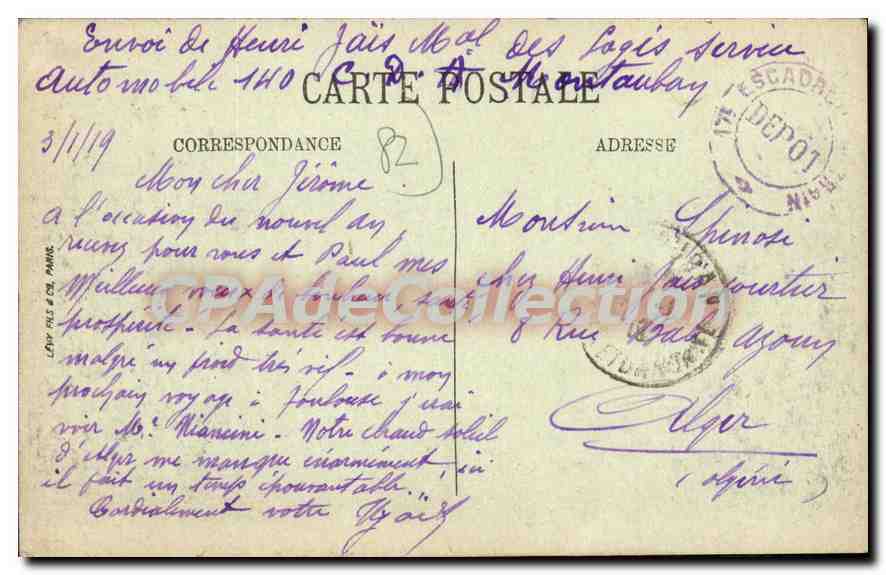 Envoi de Henri Jaïs Mal des Logis service
Automobile 140 C. D. A Montauban
CARTE POSTALE
3/1/19
CORRESPONDANCE
ADRESSE
82
Mon cher Jérôme
A l'occasion du nouvel an
recevez pour vous et Paul mes
Meilleurs vœux de bonheur, santé
prospérité - La santé est bonne
malgré un froid très vif - à mon
prochain voyage à Toulouse j'irai
voir Mr. Mancini - Notre chaud soleil
d'Alger me manque énormément, ici
il fait un temps épouvantable.
Cordialement votre HJaïs
Monsieur Spinosi
chez Henri Jaïs courtier
8 Rue Bab Azoun
Alger
(Algérie)
17e ESCADRON
DEPOT
TRAIN
LÉVY FILS & Cie, PARIS.
CPAdeCollection